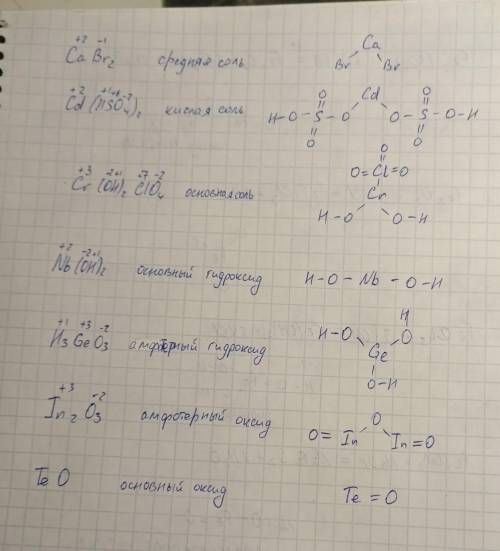 +2 -1
CaBr2 средняя соль
Ca
Br Br
+2 +1+6-2
Cd(HSO4)2 кислая соль
O Cd O
H-O-S-O O-S-O-H
O O
+3 -2+1 +7 -2
Cr(OH)2ClO4 основная соль
O
O=Cl=O
Cr
H-O O-H
+2 -2+1
Nb(OH)2 основный гидроксид H-O-Nb-O-H
H
+1 +3 -2
H3GeO3 амфотерный гидроксид H-O O
Ge
O-H
+3 -2
In2O3 амфотерный оксид O=In O In=O
TeO основный оксид Te=O